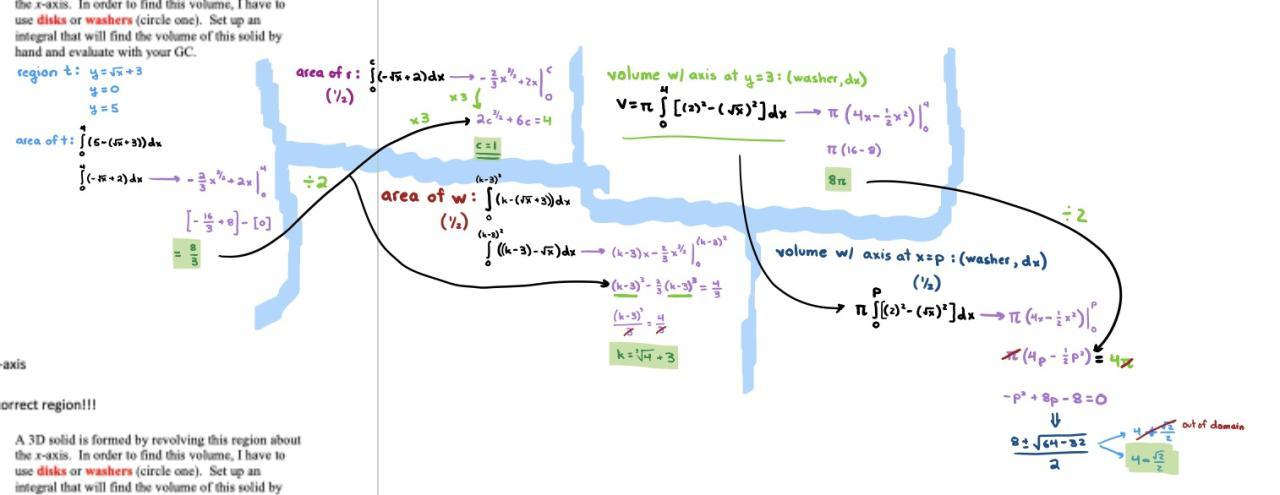 the x-axis. In order to find this volume, I have to
use disks or washers (circle one). Set up an
integral that will find the volume of this solid by
hand and evaluate with your GC.
region t: y=√x+3
y=0
y=5
area of t: ∫₀⁴(5-(√x+3))dx
∫₀⁴(-√x+2)dx → -2/3x^(3/2)+2x|₀⁴
[-16/3+8]-[0]
= 8/3
÷2
x3
area of r: ∫₀ᶜ(-√x+2)dx → -2/3x^(3/2)+2x|₀ᶜ
(1/2)
x3
2c^(3/2)+6c=4
c=1
area of w: ∫₀^((k-3)²)(k-(√x+3))dx
(1/2)
∫₀^((k-3)²)((k-3)-√x)dx → (k-3)x-2/3x^(3/2)|₀^((k-3)²)
(k-3)³-2/3(k-3)³=4/3
(k-3)³/3=4/3
k=³√4+3
volume w/ axis at y=3: (washer, dx)
V=π∫₀⁴[(2)²-(√x)²]dx → π(4x-1/2x²)|₀⁴
π(16-8)
8π
÷2
volume w/ axis at x=p: (washer, dx)
(1/2)
π∫₀ᴾ[(2)²-(√x)²]dx → π(4x-1/2x²)|₀ᴾ
π(4p-1/2p²)=4π
-p²+8p-8=0
⇓
8±√(64-32)/2
4+√2/2 out of domain
4-√2/2
-axis
orrect region!!!
A 3D solid is formed by revolving this region about
the x-axis. In order to find this volume, I have to
use disks or washers (circle one). Set up an
integral that will find the volume of this solid by